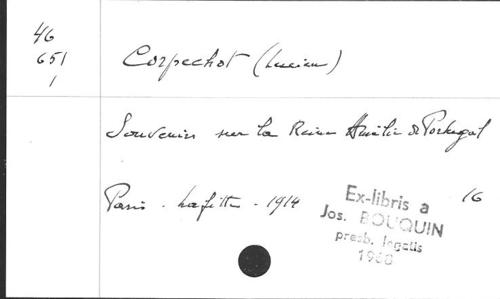 46
651
1
Corpechot (Lucien)
Souvenirs sur la Reine Amélie de Portugal
Paris . Lafitte . 1914
16
Ex-libris a
Jos. BOUQUIN
presb. legatis
1968